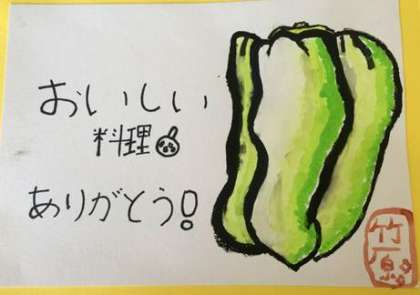 おいしい
料理
ありがとう!
竹原